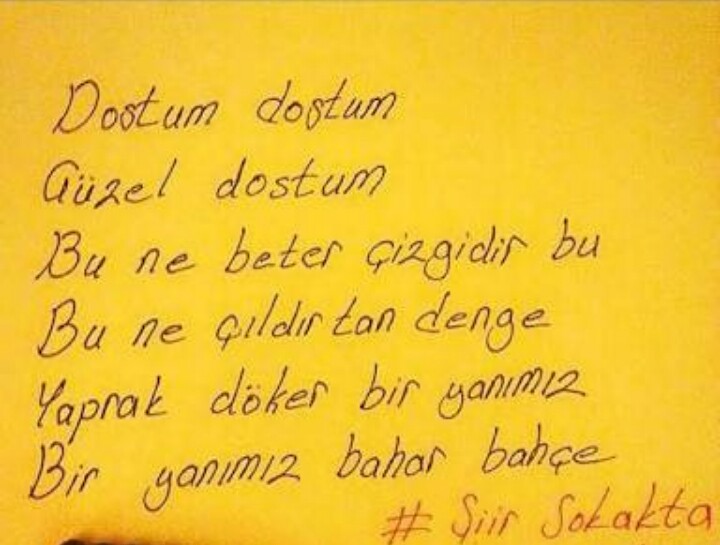 Dostum dostum
Güzel dostum
Bu ne beter çizgidir bu
Bu ne çıldırtan denge
Yaprak döker bir yanımız
Bir yanımız bahar bahçe
# Şiir Sokakta